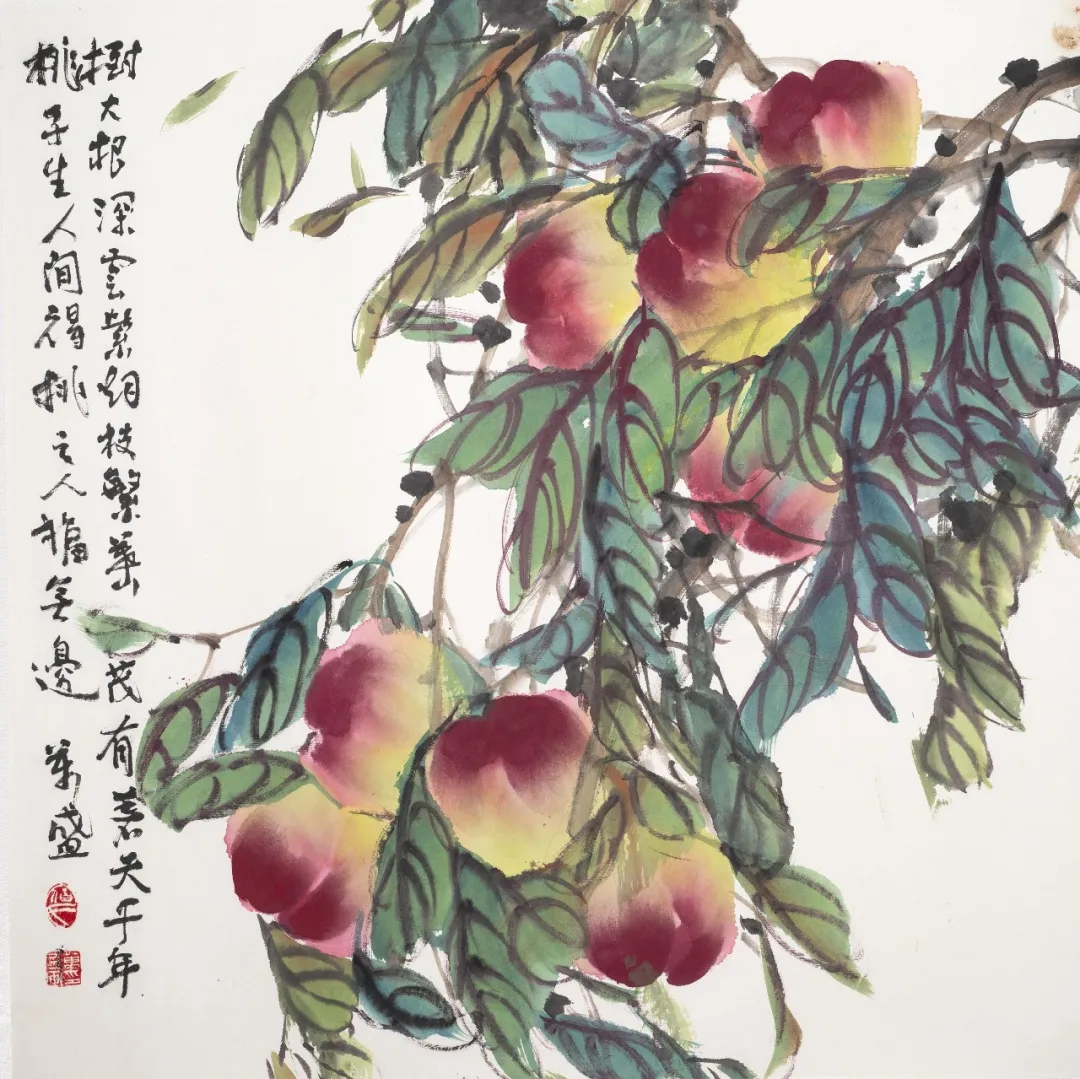 樹大根深雲紫烟枝繁葉茂有天千年
桃子生人間桃之人福無邊 萬盛